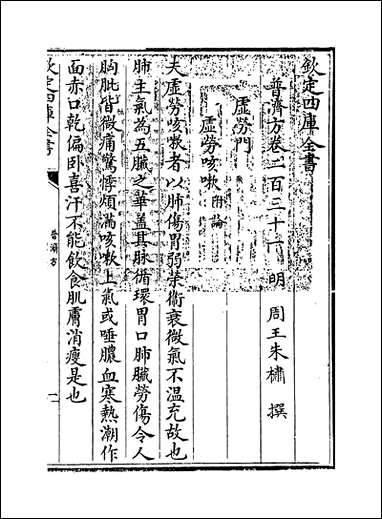 欽定四庫全書
普濟方卷二百三十一 明 周王朱橚 撰
虛勞門
虛勞咳嗽 附論
夫虛勞咳嗽者以肺傷胃弱榮衛衰微氣不温充故也
肺主氣為五臟之華蓋其脉循環胃口肺臟勞傷令人
胸胣偕微痛驚悸煩滿咳嗽上氣或唾膿血寒熱潮作
面赤口乾偏卧喜汗不能飲食肌膚消瘦是也
欽定四庫全書
普濟方
一